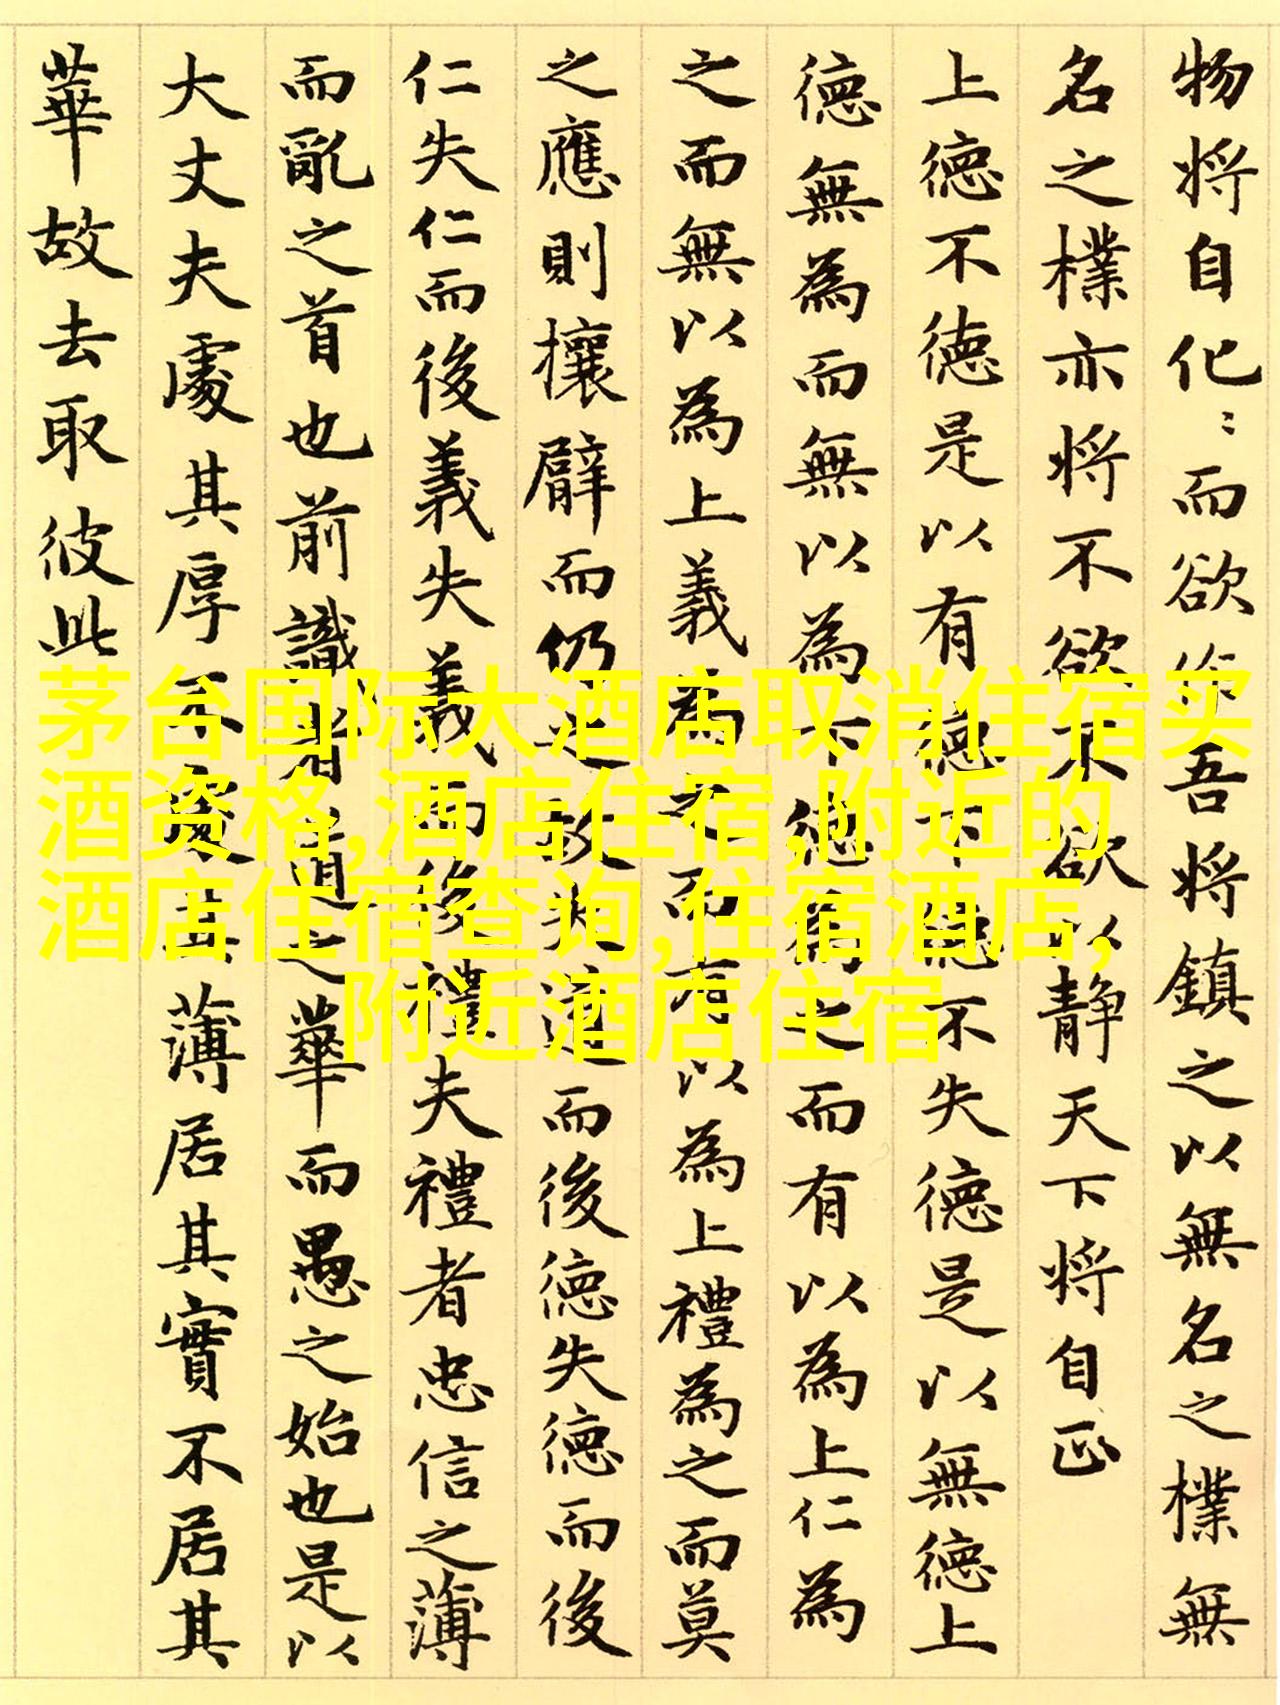 物将自化〻而欲作吾将鎮之以無名之樸無
名之樸亦将不欲不欲以静天下将自正
上德不德是以有德下德不失德是以無德上
德無為而無以為下德為之而有以為上仁為
之而無以為上義為之而有以為上禮為之而莫
之應則攘臂而仍之故失道而後德失德而後
仁失仁而後義失義而後禮夫禮者忠信之薄
而亂之首也前識者道之華而愚之始也是以
大丈夫處其厚不處其薄居其實不居其
華故去取彼此
茅台国际大酒店取消住宿买
酒资格,酒店住宿,附近的
酒店住宿查询,住宿酒店,
附近酒店住宿